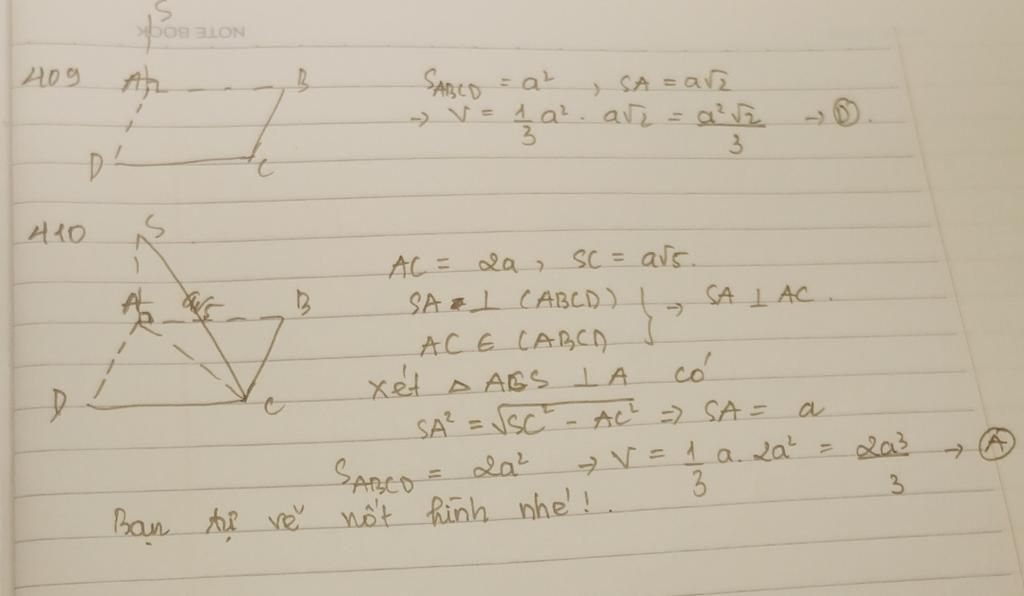 NOTE BOOK
S
409
A B
D C
S_ABCD = a², SA = a√2
→ V = 1/3 a² . a√2 = a²√2/3 → Ⓓ.
410
S
A B
D C
AC = 2a, SC = a√5.
SA ⊥ (ABCD) } → SA ⊥ AC.
AC ∈ (ABCD)
xét △ ACS ⊥ A có
SA² = √SC² - AC² ⇒ SA = a
S_ABCD = 2a² → V = 1/3 a. 2a² = 2a³/3 → Ⓐ
Bạn tự vẽ nốt hình nhé!.